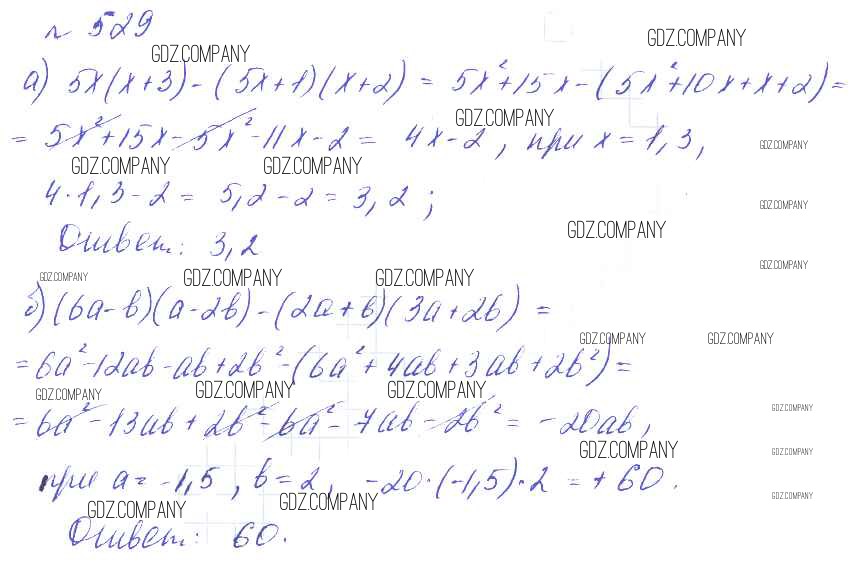 № 529
GDZ.COMPANY GDZ.COMPANY
а) 5x(x+3)-(5x+1)(x+2) = 5x²+15x-(5x²+10x+x+2)=
GDZ.COMPANY
= 5x²+15x-5x²-11x-2 = 4x-2, при x=1,3,
GDZ.COMPANY
GDZ.COMPANY GDZ.COMPANY
4·1,3-2 = 5,2-2 = 3,2;
GDZ.COMPANY
Ответ: 3,2
GDZ.COMPANY
GDZ.COMPANY
GDZ.COMPANY GDZ.COMPANY GDZ.COMPANY
б) (6a-b)(a-2b)-(2a+b)(3a+2b) =
GDZ.COMPANY GDZ.COMPANY
=6a²-12ab-ab+2b²-(6a²+4ab+3ab+2b²)=
GDZ.COMPANY GDZ.COMPANY GDZ.COMPANY
GDZ.COMPANY
= 6a²-13ab+2b²-6a²-7ab-2b² = -20ab,
GDZ.COMPANY GDZ.COMPANY
при a=-1,5, b=2, -20·(-1,5)·2 = +60.
GDZ.COMPANY
GDZ.COMPANY GDZ.COMPANY
Ответ: 60.